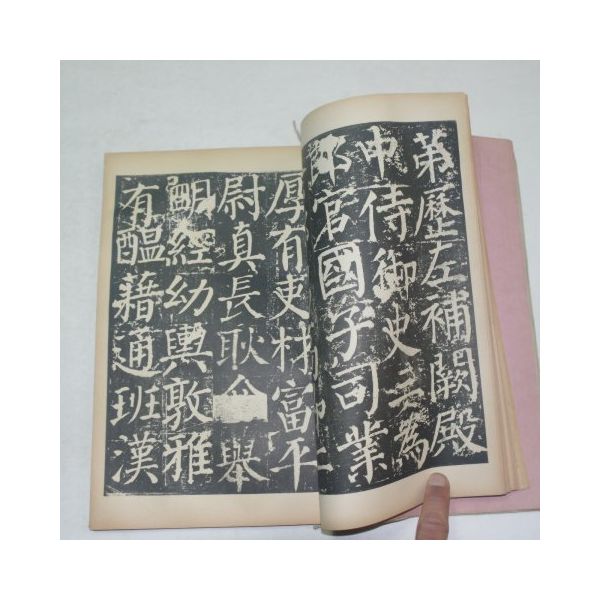 苐歷左補闕殿
中侍御史三為
郎官國子司業
厚有吏材富平
尉真長耿介舉
眀經幼輿敦雅
有醞藉通班漢